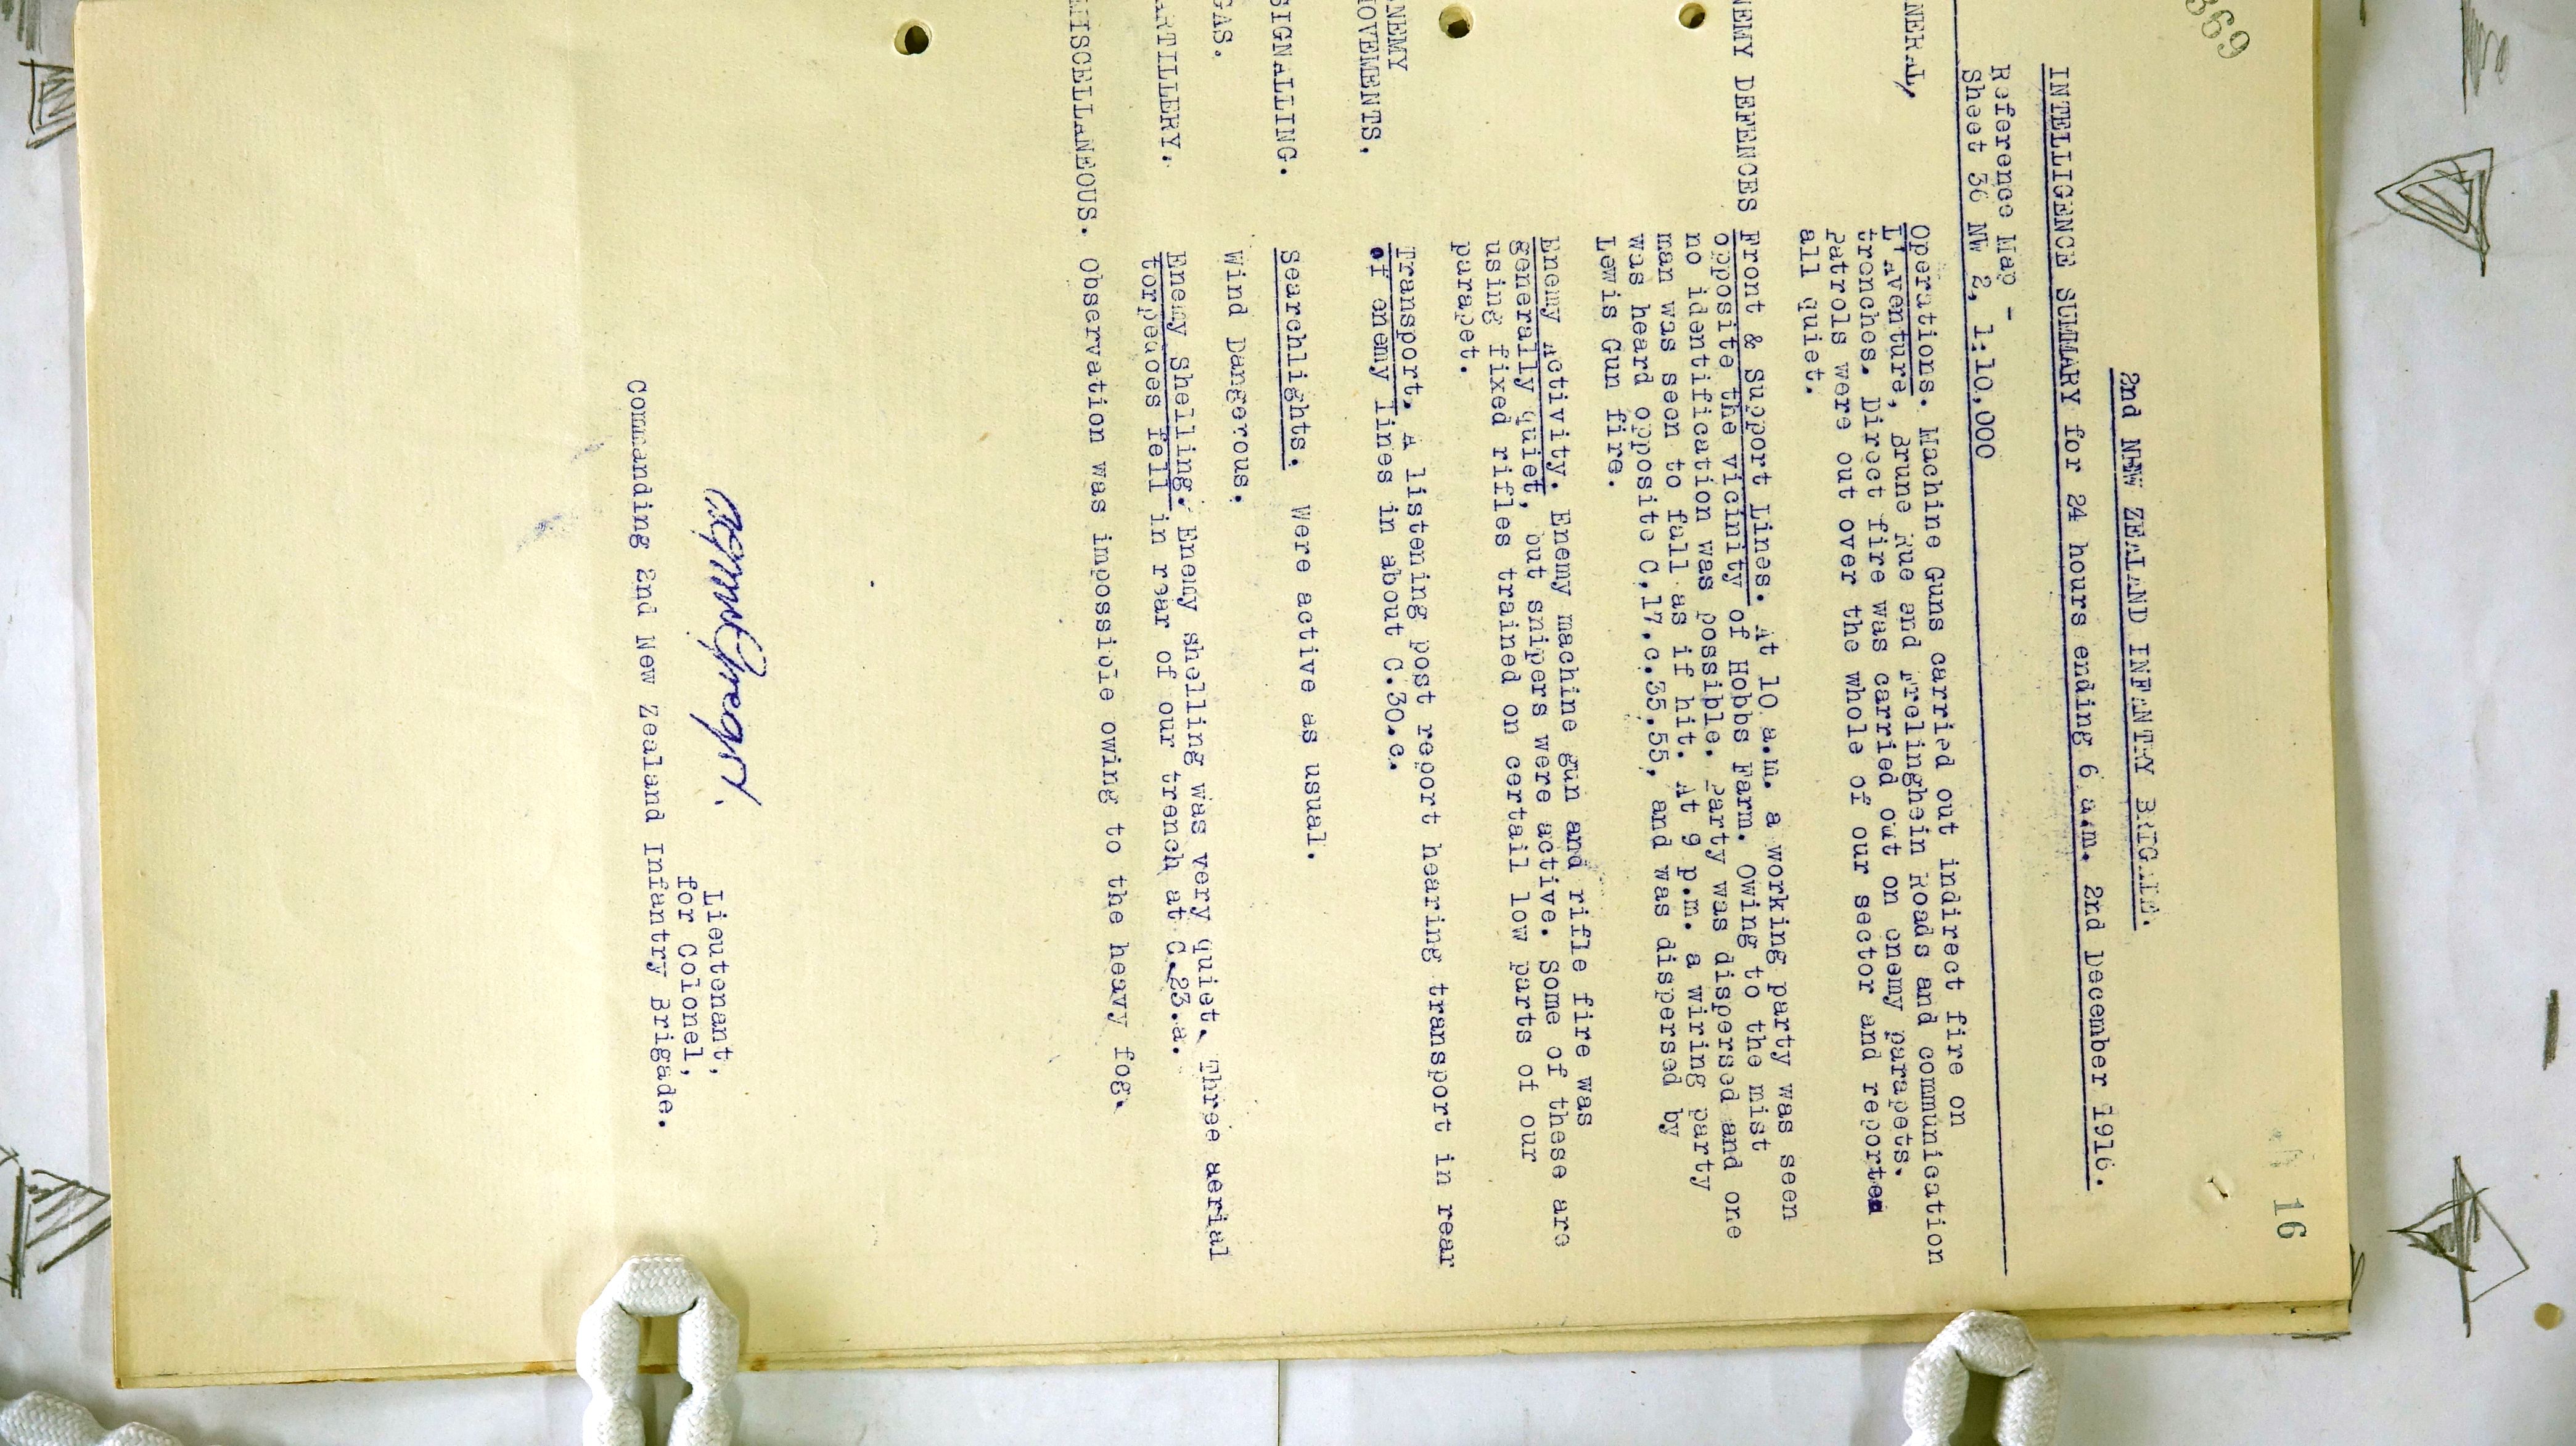 369
16
2nd NEW ZEALAND INFANTRY BRIGADE.
INTELLIGENCE SUMMARY for 24 hours ending 6 a.m. 2nd December 1916.
Reference Map -
Sheet 36 NW 2, 1:10,000
NERAL, Operations. Machine Guns carried out indirect fire on
L'Aventure, Brune Rue and Frelinghein Roads and communication
trenches. Direct fire was carried out on enemy parapets.
Patrols were out over the whole of our sector and reported
all quiet.
NEMY DEFENCES Front & Support Lines. At 10 a.m. a working party was seen
opposite the vicinity of Hobbs Farm. Owing to the mist
no identification was possible. Party was dispersed and one
man was seen to fall as if hit. At 9 p.m. a wiring party
was heard opposite C.17.c.35.55, and was dispersed by
Lewis Gun fire.
Enemy Activity. Enemy machine gun and rifle fire was
generally quiet, but snipers were active. Some of these are
using fixed rifles trained on certain low parts of our
parapet.
NEMY Transport. A listening post report hearing transport in rear
OVEMENTS. of enemy lines in about C.30.c.
SIGNALLING. Searchlights. Were active as usual.
GAS. Wind Dangerous.
ARTILLERY. Enemy Shelling. Enemy shelling was very quiet. Three aerial
torpedoes fell in rear of our trench at C.23.a.
MISCELLANEOUS. Observation was impossible owing to the heavy fog.
Lieutenant,
for Colonel,
Commanding 2nd New Zealand Infantry Brigade.